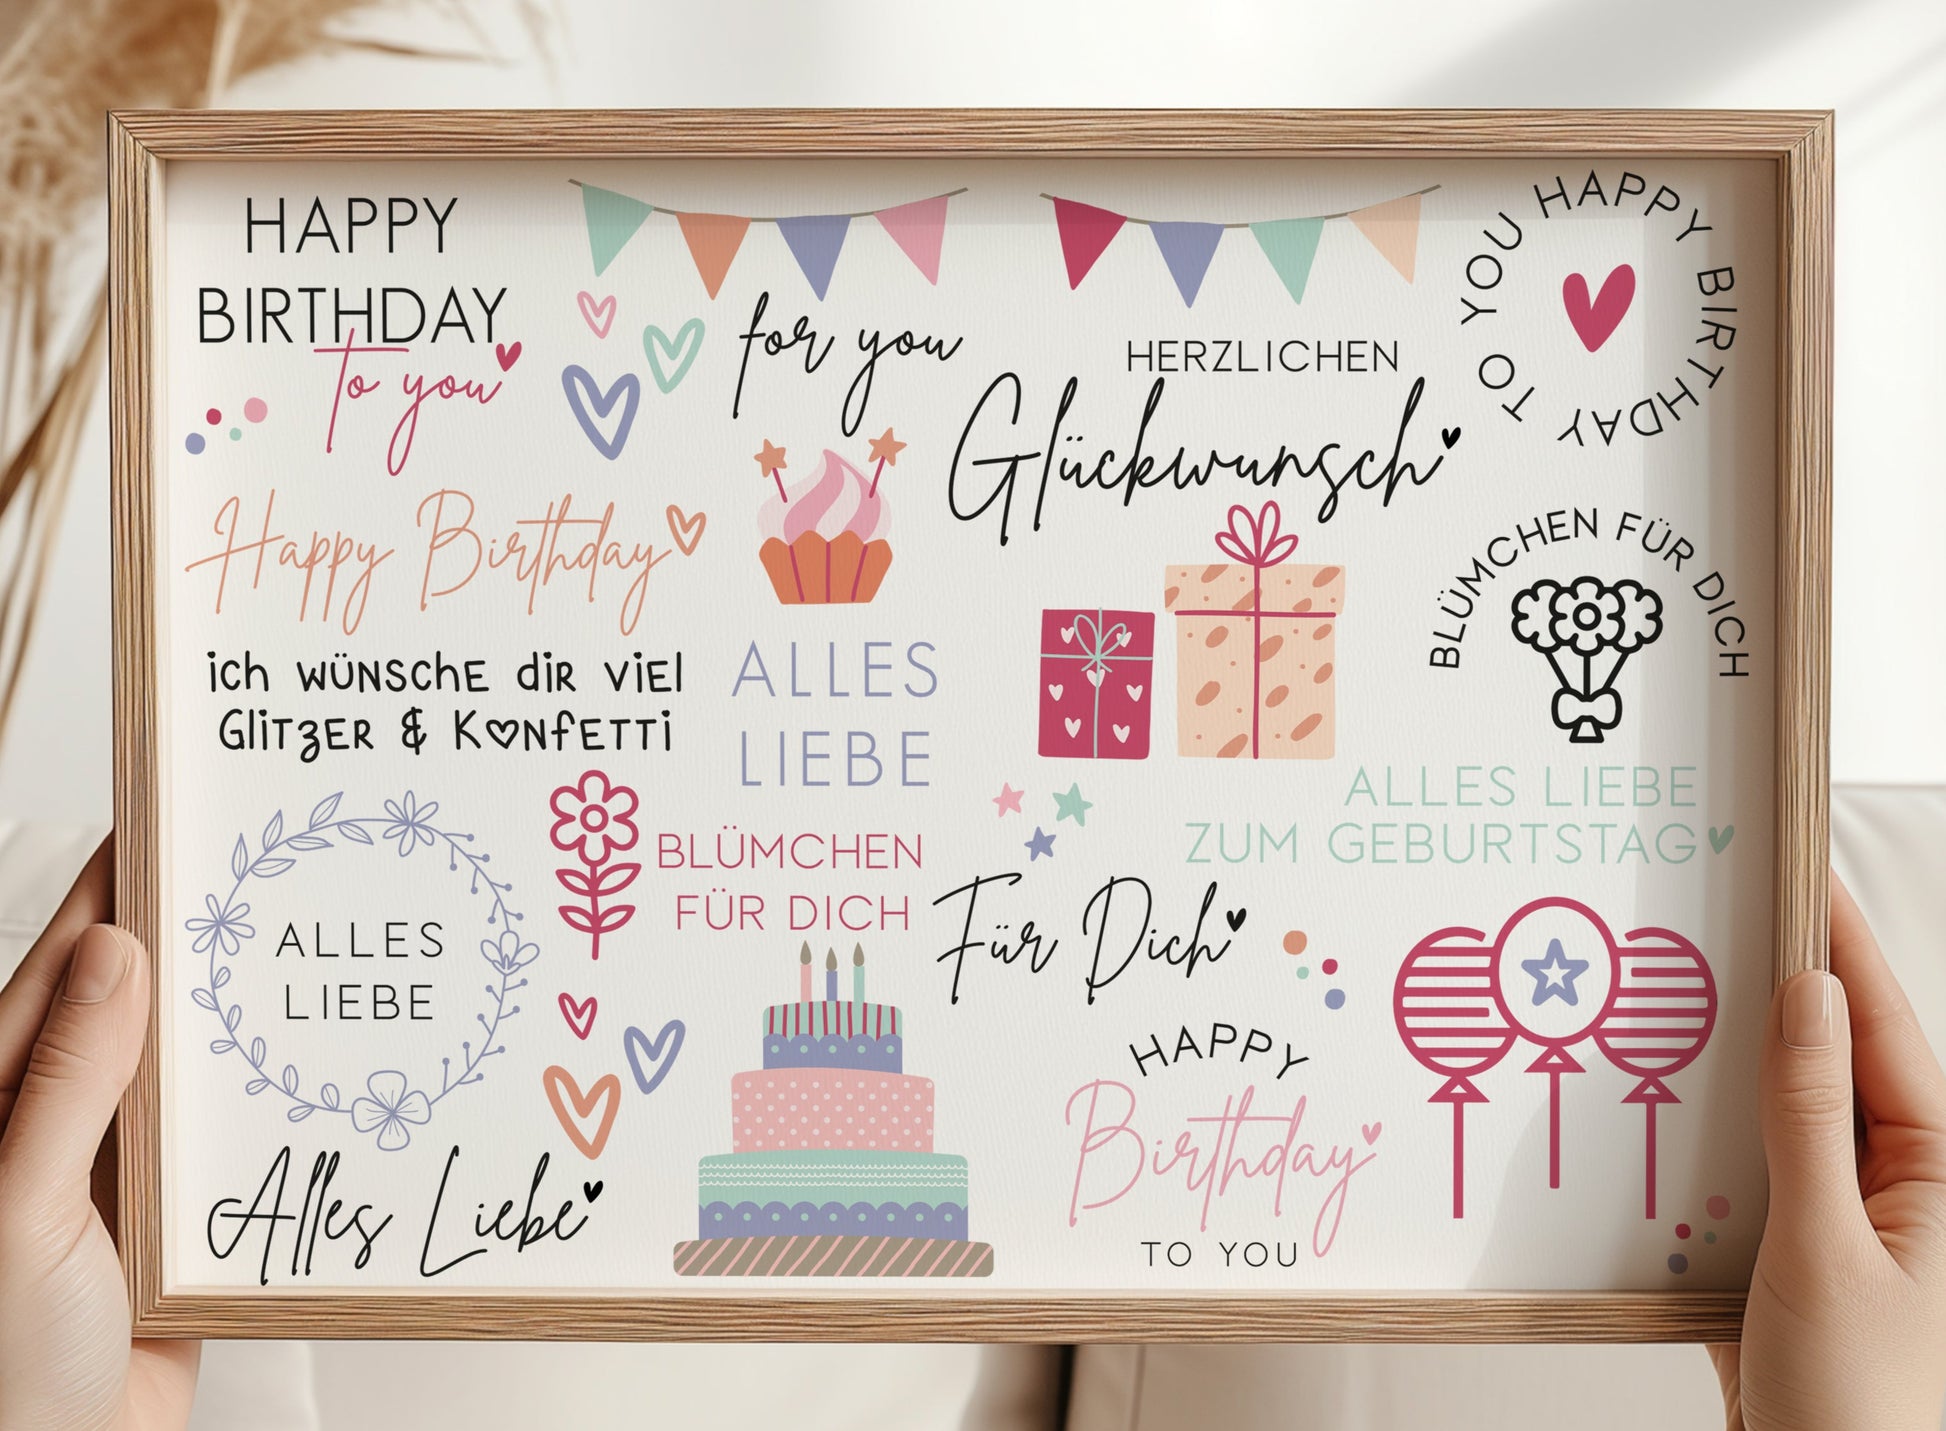 HAPPY
BIRTHDAY
To you
for you
HERZLICHEN
Glückwunsch
HAPPY BIRTHDAY TO YOU
Happy Birthday
BLÜMCHEN FÜR DICH
ich WÜNSche diR Viel
GlitzER & KONfETTi
ALLES
LIEBE
ALLES LIEBE
ZUM GEBURTSTAG
BLÜMCHEN
FÜR DICH
ALLES
LIEBE
Für Dich
HAPPY
Birthday
TO YOU
Alles Liebe